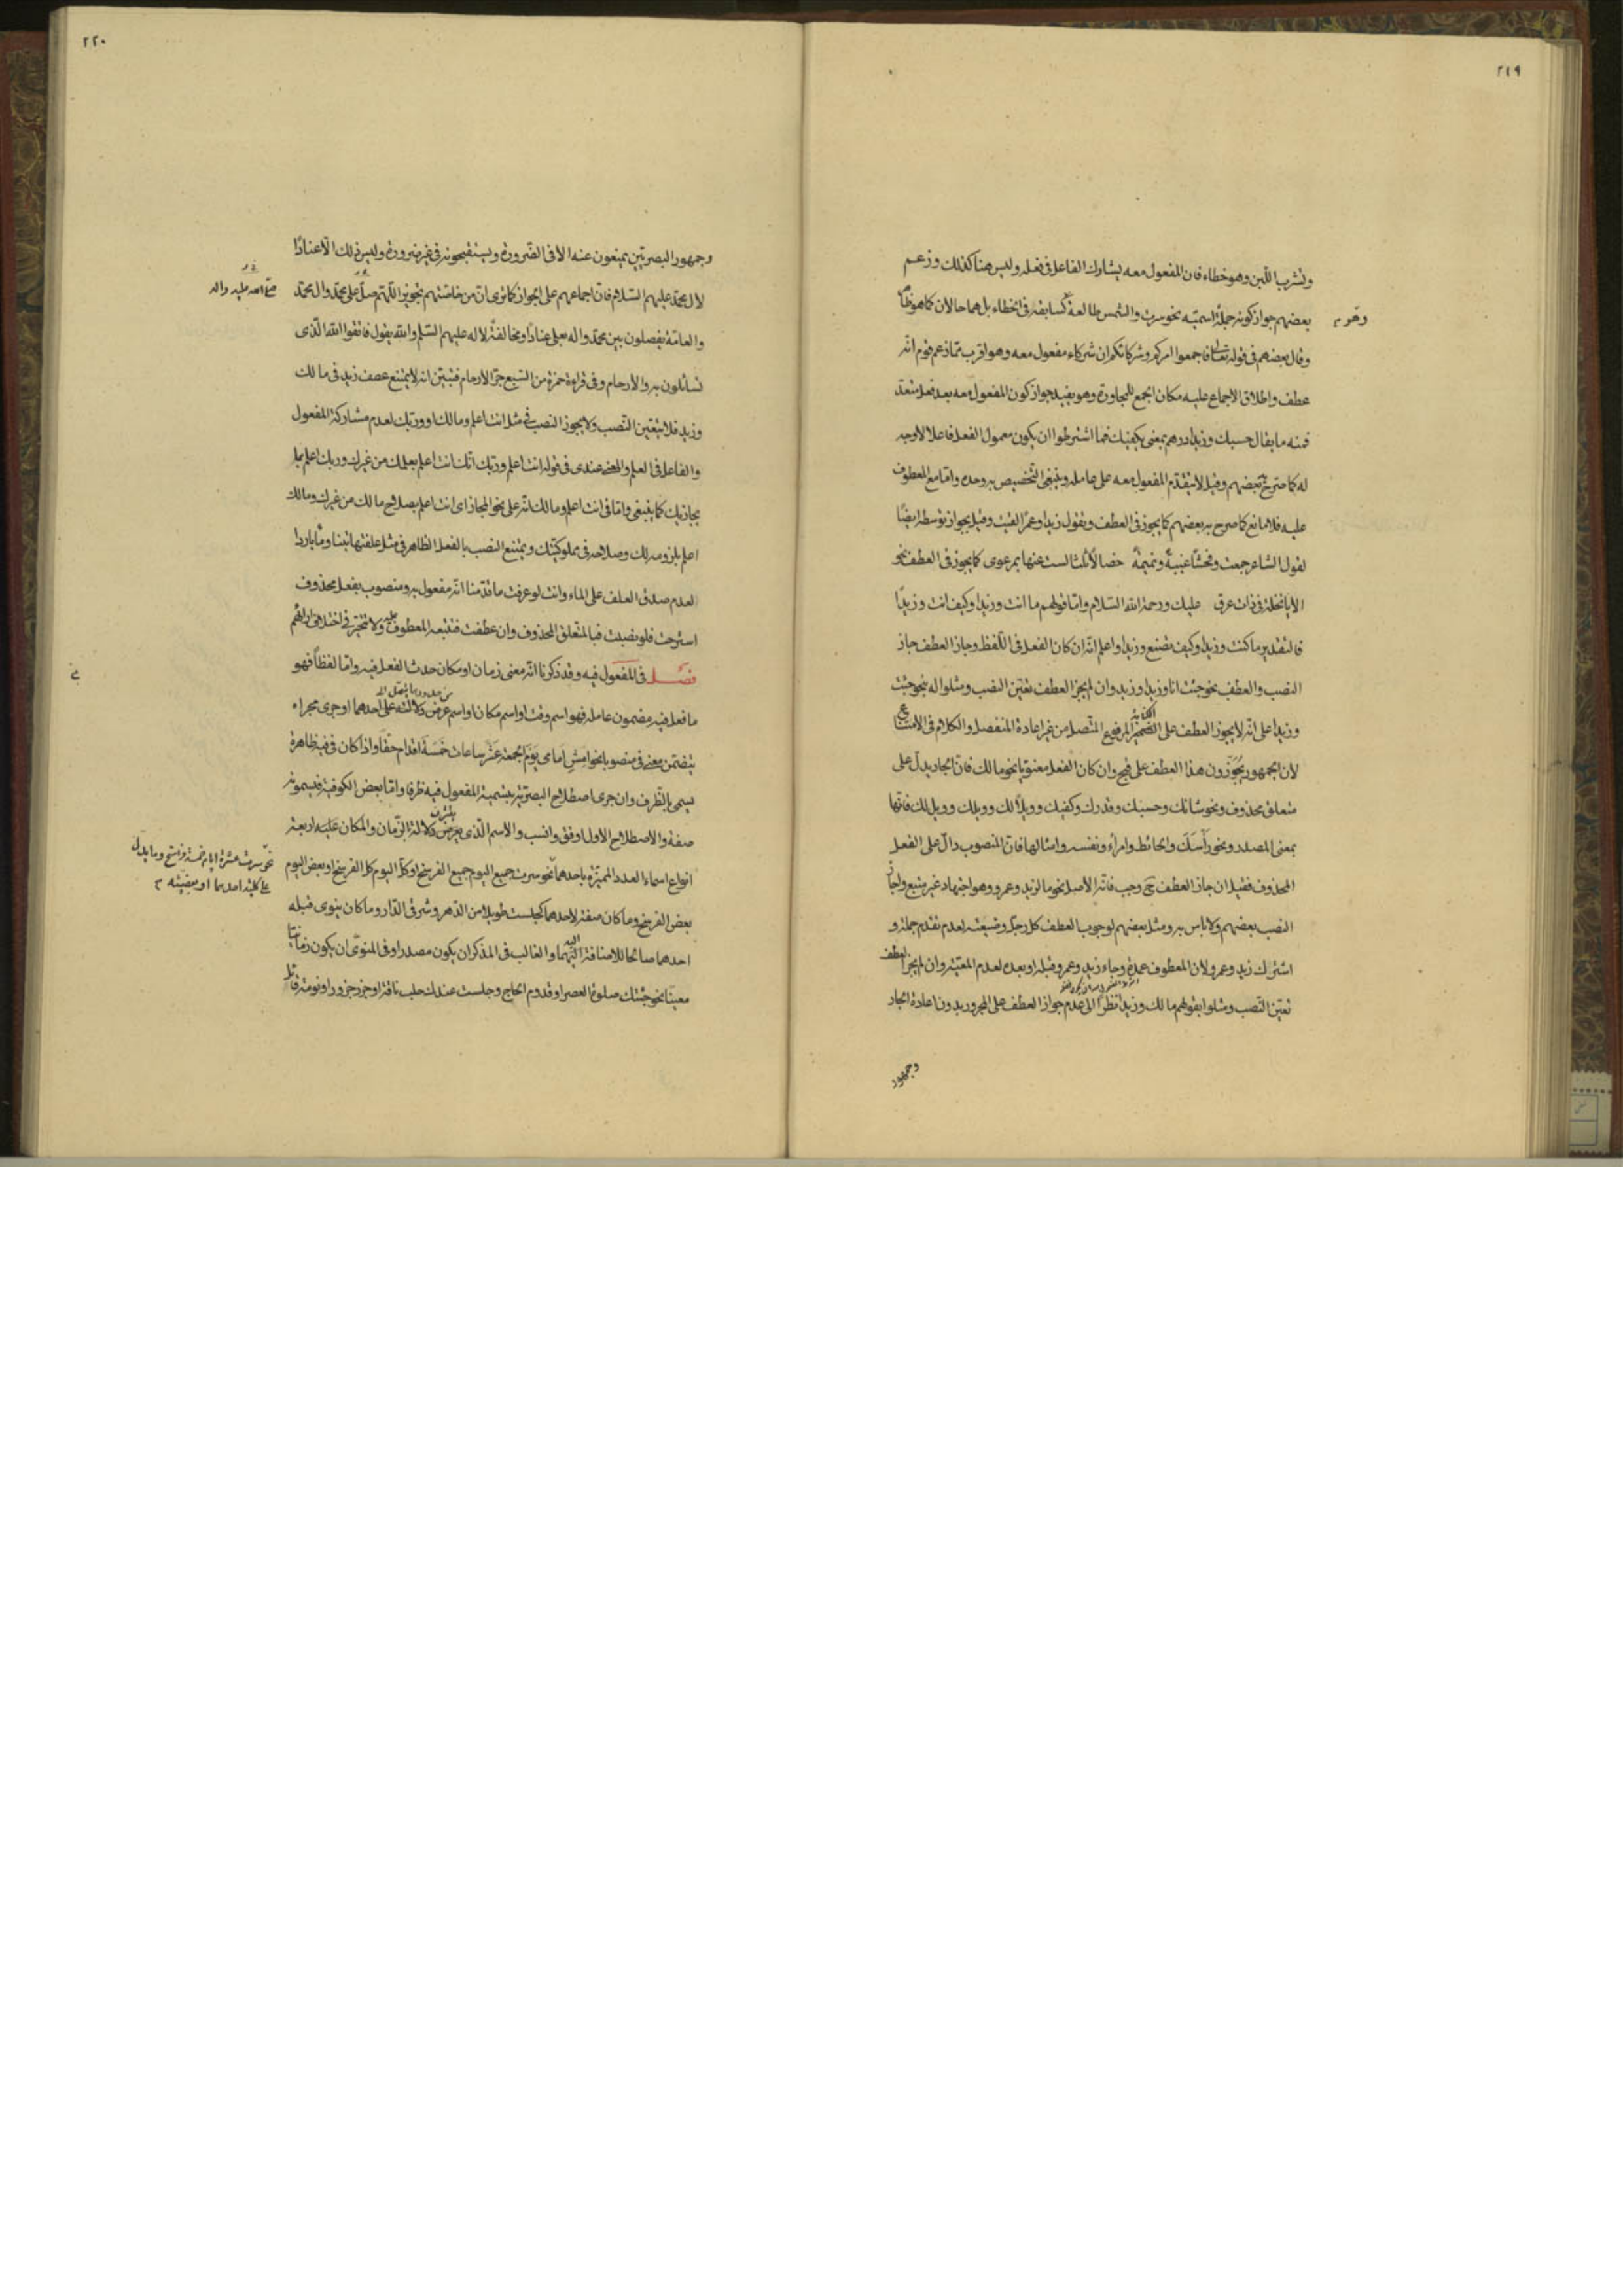 ٢١٩
وتشرب اللبن وهو خطاء فان المفعول معه يشارك الفاعل فى فعله وليس هنا كذلك وزعم
بعضهم جواز كونه جملة اسمية نحو سرت والشمس طالعة كسابقه فى الخطاء بل هما حالان كما هو ظاهر
وقال بعضهم فى قوله تعالى فاجمعوا امركم وشركائكم ان شركاء مفعول معه وهو اقرب مما زعم قوم انه
عطف واطلاق الاجماع عليه مكان الجمع للمجاورة وهو يفيد جواز كون المفعول معه بعد فعل متعد
فمنه ما يقال حسبك وزيدا درهم بمعنى يكفيك فما اشترطوا ان يكون معمول الفعل فاعلا لا وجه
له كما صرح بعضهم وقيل لا يتقدم المفعول معه على عامله وينبغى التخصيص به وحده واما مع المعطوف
عليه فلا مانع كما صرح به بعضهم كما يجوز فى العطف وتقول زيدا وعمرا لقيت وقيل يجواز توسطه ايضا
لقول الشاعر جمعت وفحشا غيبة ونميمة خصالا ثلثا لست عنها بمرعوى كما يجوز فى العطف نحو
الا يا نخلة فى ذات عرق عليك ورحمة الله السلام واما قولهم ما انت وزيدا وكيف انت وزيدا
فالتقدير ما كنت وزيدا وكيف تصنع وزيدا واعلم انه ان كان الفعل فى اللفظ وجاز العطف جاز
النصب والعطف نحو جئت انا وزيدا وزيد وان لم يجز العطف تعين النصب ومثلوا له بنحو جئت
وزيدا على انه لا يجوز العطف على الضمير المرفوع المتصل من غير اعادة المنفصل والكلام فى الامتناع
لان الجمهور يجوزون هذا العطف على قبح وان كان الفعل معنويا نحو ما لك فان الجار يدل على
متعلق محذوف ونحو شانك وحسبك وقدرك وكفيك وويلا لك وويلك وويل لك فانها
بمعنى المصدر ونحو رأسك والحائط وامرأ ونفسه وامثالها فان المنصوب دال على الفعل
المحذوف فقيل ان جاز العطف ح وجب فانه الاصل نحو ما لزيد وعمرو وهو اجتهاد غير متبع واجاز
النصب بعضهم ولا باس به ومثل بعضهم لوجوب العطف كل رجل وضيعته لعدم تقدم جملة و
اشترك زيد وعمرو لان المعطوف عمدة وجاء زيد وعمرو قبله او بعده لعدم المعية وان لم يجز العطف
تعين النصب ومثلوا بقولهم ما لك وزيدا نظرا الى عدم جواز العطف على المجرور بدون اعادة الجار
وجمهور
٢٢٠
وجمهور البصريين يمنعون عنه الا فى الضرورة ويستقبحونه فى غير ضرورة وليس ذلك الا عنادا
لال محمد عليهم السلام فان اجماعهم على الجواز كما ترى ان من خاصتهم تجويز اللهم صل على محمد وال محمد
صلى الله عليه واله
والعامة يفصلون بين محمد واله بعلى عنادا ومخالفة لاله عليهم السلم والله يقول فاتقوا الله الذى
تسائلون به والارحام وفى قراءة حمزة من السبع جر الارحام فتبين انه لا يمتنع عطف زيد فى ما لك
وزيد فلا يتعين النصب ولا يجوز النصب فى مثل انت اعلم ومالك او وربك لعدم مشاركة المفعول
والفاعل فى العلم والمعنى عندى فى قوله انت اعلم وربك انك انت اعلم بعملك من غيرك وربك اعلم بما
يجازيك كما ينبغى واما فى انت اعلم ومالك انه على نحو المجاز اى انت اعلم بصلاح مالك من غيرك ومالك
اعلم بلزومه لك وصلاحه فى مملوكيتك ويمتنع النصب بالفعل الظاهر فى مثل علفتها تبنا وماء باردا
لعدم صدق العلف على الماء وانت لو عرفت ما قدمنا انه مفعول به ومنصوب بفعل محذوف
استرحت فلو نصبت فبالمتعلق المحذوف وان عطفت فتتبعه المعطوف عليه ولا تتحير فى اختلاف ارائهم
فصل فى المفعول فيه وقد ذكرنا انه معنى زمان او مكان حدث الفعل فيه واما لفظا فهو
ما فعل فيه مضمون عامله فهو اسم وقت او اسم مكان او اسم عرض دلالته على احدهما او جرى مجراه
يتضمن معنى فى منصوبا نحو امش امامى يوم الجمعة عشر ساعات خمسة اقدام حقا واذا كان فى فيه ظاهرة
يسمى بالظرف وان جرى اصطلاح البصرية بتسمية المفعول فيه ظرفا واما بعض الكوفية فيسمونه
صفة والاصطلاح الاول اوفق وانسب والاسم الذى يعرض دلالة الزمان والمكان عليه اربعة
انواع اسماء العدد المميزة باحدهما نحو سرت جميع اليوم جميع الفرسخ او كل اليوم كل الفرسخ او بعض اليوم
نحو سرت عشرة ايام خمسة فراسخ وما يدل
على كلية احدهما او بعضيته
بعض الفرسخ وما كان صفة لاحدهما كجلست طويلا من الدهر وشرقى الدار وما كان ينوى قبله
احدهما صالحا للاضافة اليهما والغالب فى المذكر ان يكون مصدرا وفى المنوى ان يكون زمانا
معينا نحو جئتك صلوة العصر او قدوم الحاج وجلست عندك حلب ناقة او جزر جزور او نومة